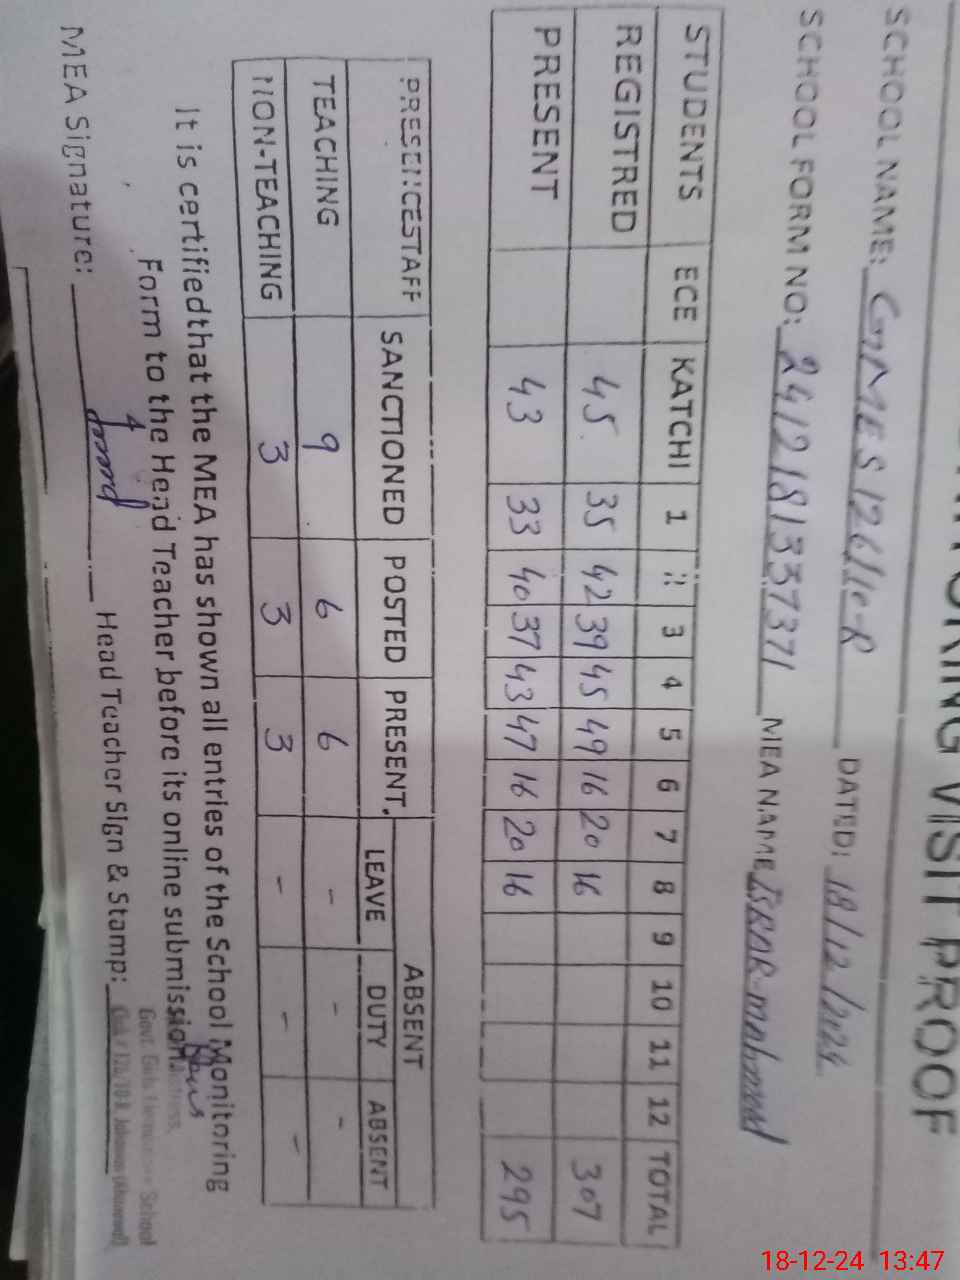 MONITORING VISIT PROOF
SCHOOL NAME: GMES 126/10-R DATED: 18/12/2024
SCHOOL FORM NO: 2412181337371 MEA NAME ISRAR-mahmud
STUDENTS ECE KATCHI 1 2 3 4 5 6 7 8 9 10 11 12 TOTAL
REGISTRED 45 35 42 39 45 49 16 20 16 307
PRESENT 43 33 40 37 43 47 16 20 16 295
PRESENCESTAFF SANCTIONED POSTED PRESENT ABSENT
LEAVE DUTY ABSENT
TEACHING 9 6 6 - - -
NON-TEACHING 3 3 3 - - -
It is certifiedthat the MEA has shown all entries of the School Monitoring
Form to the Head Teacher before its online submission.
MEA Signature: Head Teacher Sign & Stamp:
Govt. Girls School
18-12-24 13:47